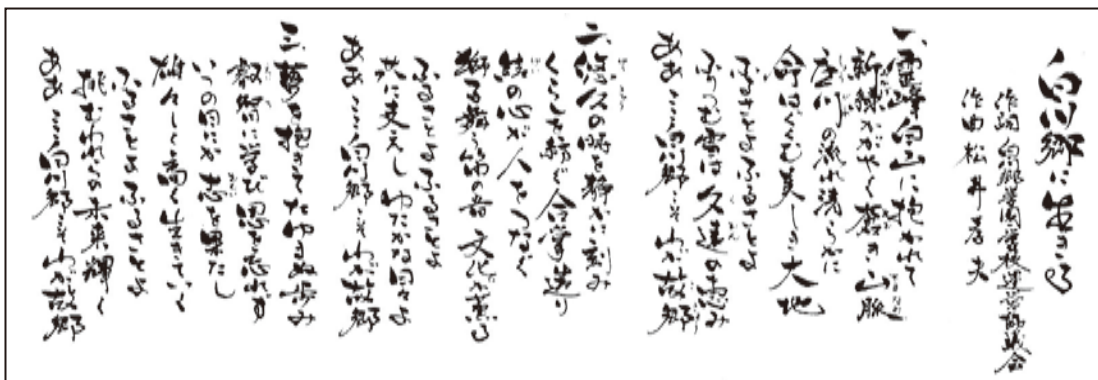 白川郷に生きる
作詞 白川郷学園学校運営協議会
作曲 松井孝夫
一、霊峰白山に抱かれて
新緑かがやく蒼き山脈
庄川の流れ清らかに
命はぐくむ美しき大地
ふるさとよふるさとよ
ふりつむ雪は久遠の恵み
ああ ここ白川郷こそわが故郷
二、悠久の時を静かに刻み
くらしを紡ぐ合掌造り
結の心が人をつなぐ
獅子舞う笛の音 文化が薫る
ふるさとよふるさとよ
共に支えしゆたかな日々よ
ああ ここ白川郷こそわが故郷
三、夢を抱きてたゆまぬ歩み
叡智に学び恩を忘れず
いつの日にか志を果たし
雄々しく高く生きていく
ふるさとよふるさとよ
挑むわれらの未来輝く
ああ ここ白川郷こそわが故郷